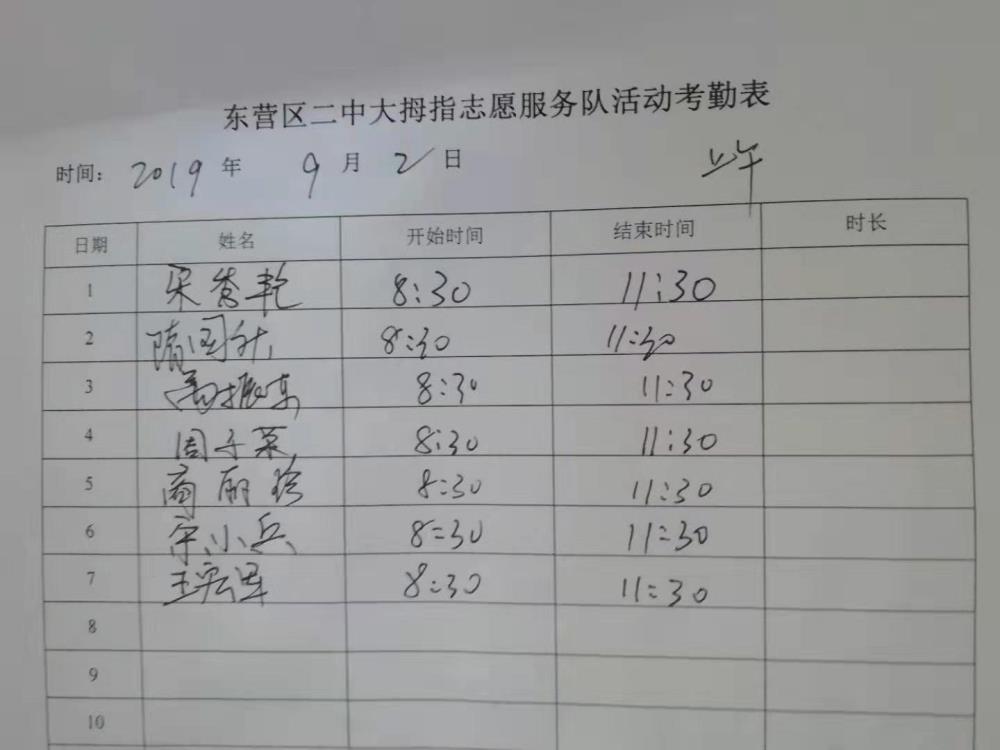 东营区二中大拇指志愿服务队活动考勤表
时间： 2019 年 9 月 21 日 上午
日期 姓名 开始时间 结束时间 时长
1 宋秀乾 8:30 11:30
2 隋国秋 8:30 11:30
3 高振东 8:30 11:30
4 周子英 8:30 11:30
5 商丽珍 8:30 11:30
6 宋小兵 8:30 11:30
7 王宏 8:30 11:30
8
9
10